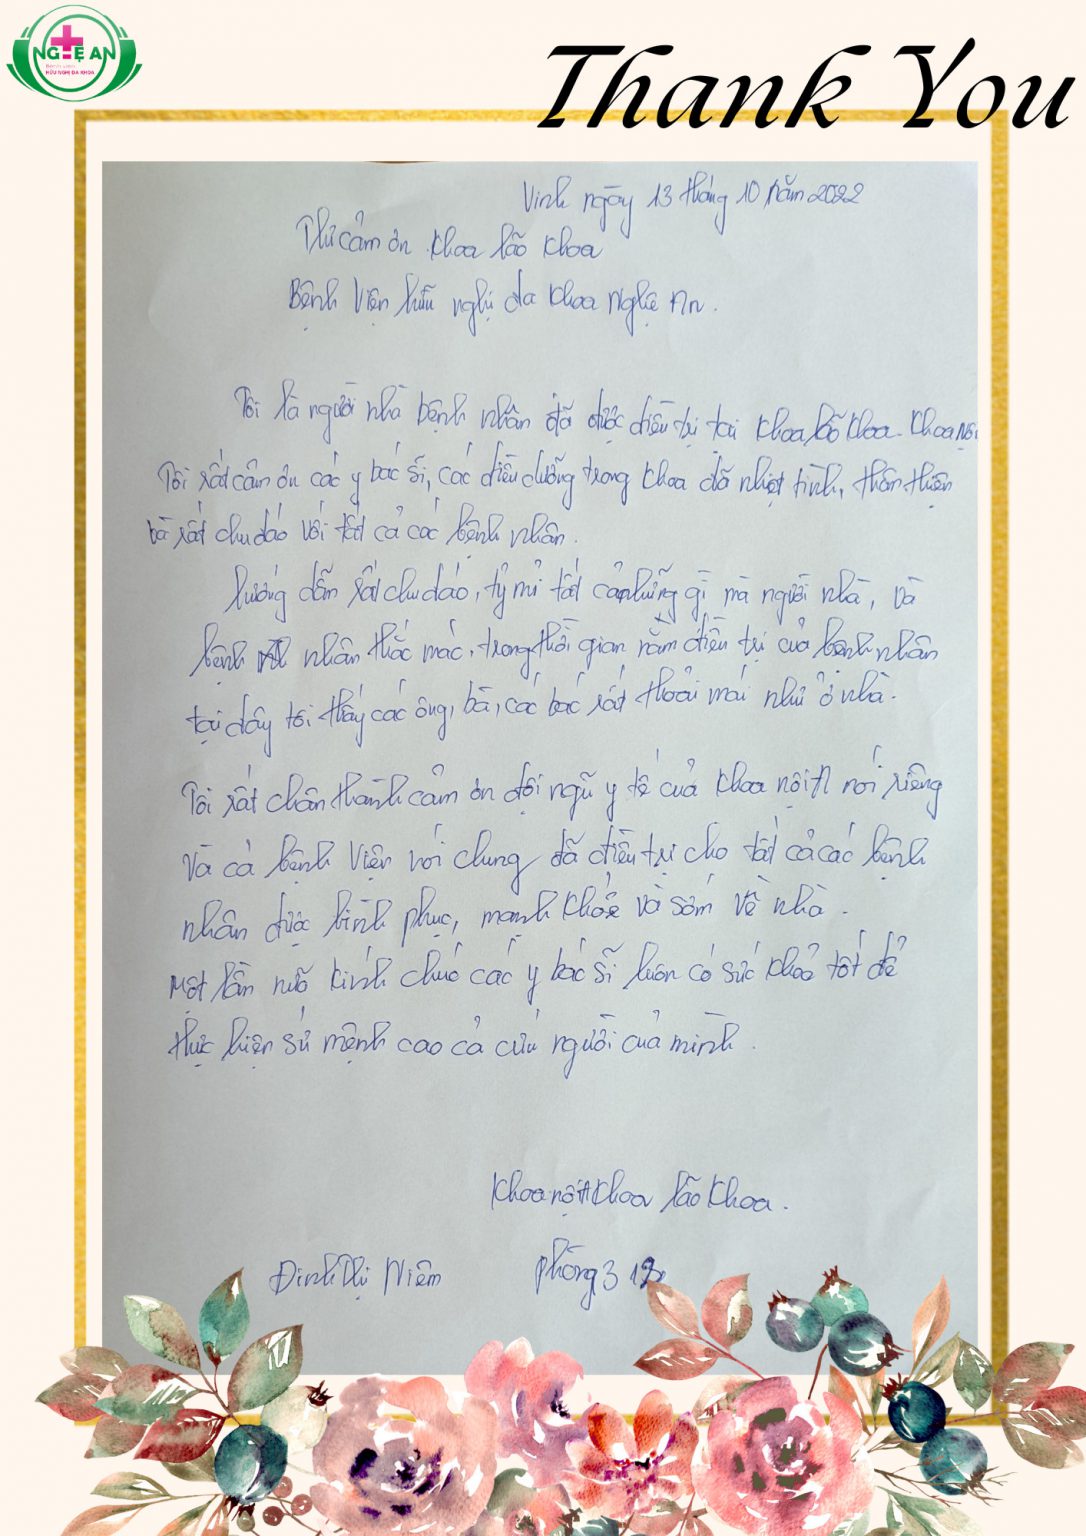 NGHỆ AN
BỆNH VIỆN
HỮU NGHỊ ĐA KHOA
Thank You
Vinh ngày 13 tháng 10 năm 2022
Thư cảm ơn khoa lão khoa
Bệnh viện hữu nghị đa khoa Nghệ An.
Tôi là người nhà bệnh nhân đã được điều trị tại khoa lão khoa. Khoa nội
Tôi rất cảm ơn các y bác sĩ, các điều dưỡng trong khoa đã nhiệt tình, thân thiện
và rất chu đáo với tất cả các bệnh nhân.
hướng dẫn rất chu đáo, tỷ mỉ tất cả những gì mà người nhà, và
bệnh nhân thắc mắc, trong thời gian nằm điều trị của bệnh nhân
tại đây tôi thấy các ông, bà, các bác rất thoải mái như ở nhà.
Tôi rất chân thành cảm ơn đội ngũ y tế của khoa nội A nói riêng
và cả bệnh viện nói chung đã điều trị cho tất cả các bệnh
nhân được bình phục, mạnh khỏe và sớm về nhà.
Một lần nữa kính chúc các y bác sĩ luôn có sức khoẻ tốt để
thực hiện sứ mệnh cao cả cứu người của mình.
Khoa nội A khoa lão khoa.
Đinh Thị Niêm phòng 3